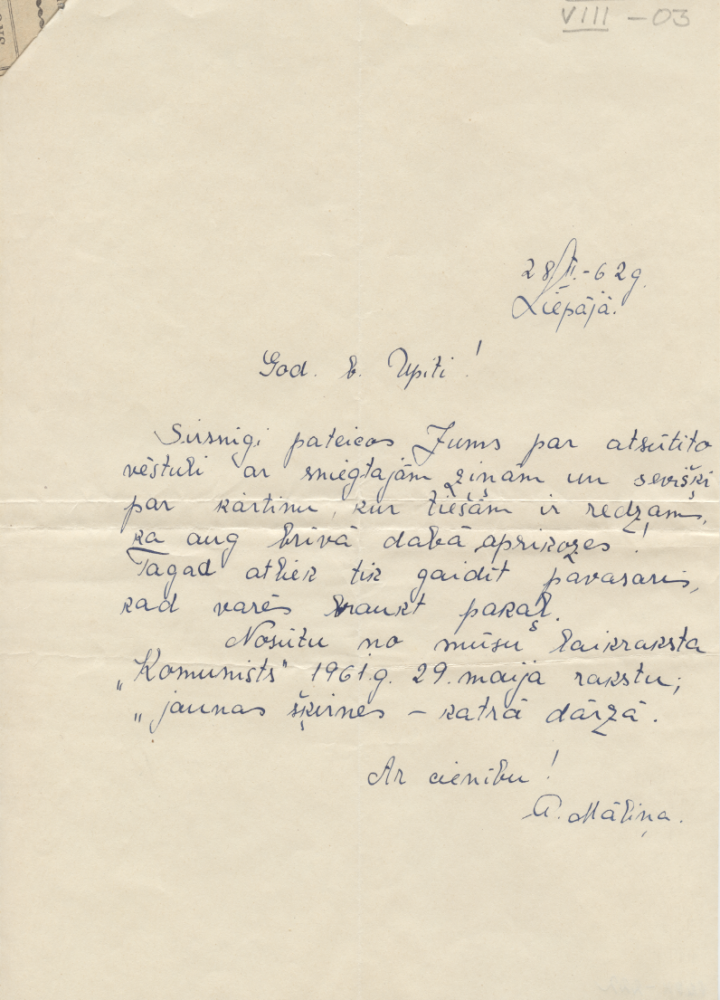 VIII - 03
28/II.-62g.
Liepājā.
God. b. Upīti!
Sirsnīgi pateicos Jums par atsūtīto
vēstuli ar sniegtajām ziņām un sevišķi
par kārtiņu, kur tiešām ir redzams,
ka aug brīvā dabā aprikozes!
Tagad atliek tik gaidīt pavasaris,
kad varēs braukt pakaļ.
Nosūtu no mūsu laikraksta
„Komunists" 1961.g. 29. maija rakstu;
„jaunas šķirnes – katrā dārzā.
Ar cienību!
Māliņa.